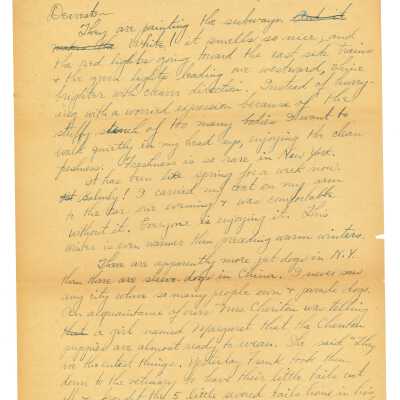 Dearest
They are painting the subways and it
makes the White! It smells so nice, and
the red lights going toward the east side trains
& the green lights leading one westward, shine
brighter with clean direction. Instead of hurry-
ing with a worried expression because of the
stuffy stench of too many bodies I want to
walk quietly on my head up, enjoying the clean
freshness. Freshness is so rare in New York.
It has been like spring for a week now.
Balmly! I carried my coat on my arm
to the car one evening & was comfortable
without it. Everyone is enjoying it. This
winter is even warmer than preceding warm winters.
There are apparently more pet dogs in N.Y.
than there are slave dogs in China. I never saw
any city where so many people own & parade dogs.
An acquaintance of mine Mrs. Cheriton was telling
a girl named Margaret that the
puppies are almost ready to wean. She said "They
the cutest things. Yesterday Frank took them
down to the vetinary to have their little tails cut
the 5 little sword tails home in his